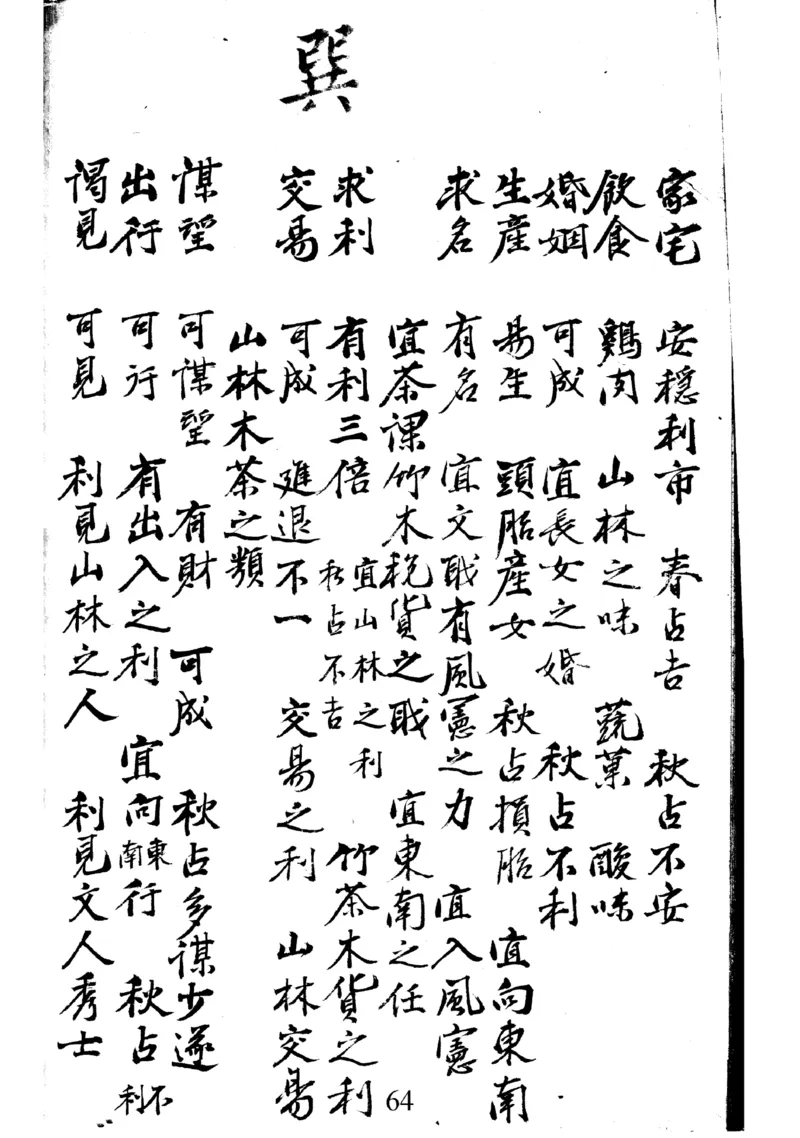 巽
家宅 安穩利市 春占吉 秋占不安
飲食 鷄肉 山林之味 蔬菓 酸味
婚姻 可成 宜長女之婚 秋占不利
生產 易生 頭胎產女 秋占損胎 宜向東南
求名 有名 宜文戢有風憲之力 宜入風憲
宜茶課竹木稅貨之戢 宜東南之任
求利 有利三倍 宜山林之利 秋占不吉 竹茶木貨之利
交易 可成 進退不一 交易之利 山林交易
山林木茶之類
謀望 可謀望 有財 可成 秋占多謀少遂
出行 可行 有出入之利 宜向東南行 秋占不利
謁見 可見 利見山林之人 利見文人秀士
64